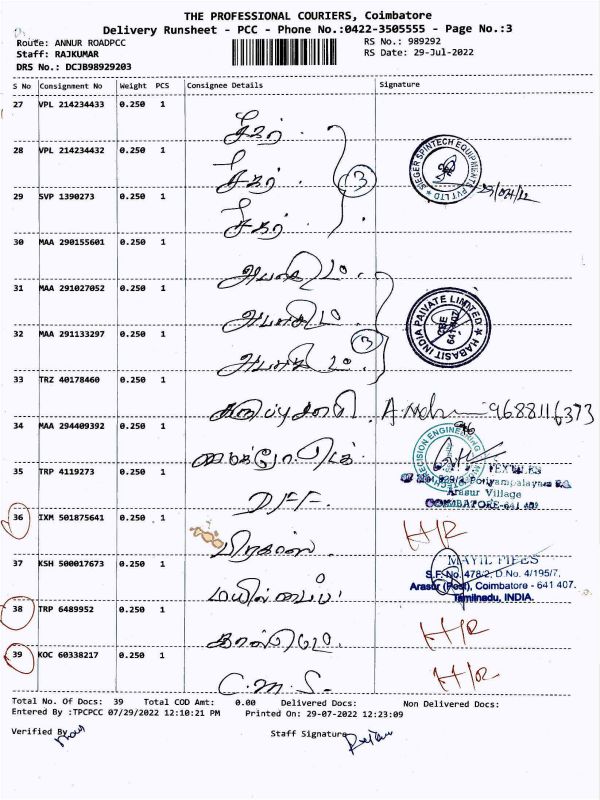 THE PROFESSIONAL COURIERS, Coimbatore
Delivery Runsheet - PCC - Phone No.:0422-3505555 - Page No.:3
Route: ANNUR ROADPCC RS No.: 989292
Staff: RAJKUMAR RS Date: 29-Jul-2022
DRS No.: DCJB98929203
S No Consignment No Weight PCS Consignee Details Signature
27 VPL 214234433 0.250 1 சேகர்
28 VPL 214234432 0.250 1 சேகர்
29 SVP 1390273 0.250 1 சேகர்
3
SIEGER SPINTECH EQUIPMENTS PVT LTD
30 MAA 290155601 0.250 1
31 MAA 291027052 0.250 1
32 MAA 291133297 0.250 1
3
HABASIT INDIA PAIVATE LIMITED
CBE
641407
33 TRZ 40178460 0.250 1 9688116373
34 MAA 294409392 0.250 1
PRECISION ENGINEERING
35 TRP 4119273 0.250 1 D.F.F.
TEXTILES
Arasur Village
COIMBATORE-641 407
36 IXM 501875641 0.250 1 பிரகாஸ் H/R
37 KSH 500017673 0.250 1 மயில் பைப்
MAYIL PIPES
S.F. No. 478/2, D.No. 4/195/7,
Arasur (Post), Coimbatore - 641 407.
Tamilnadu, INDIA.
38 TRP 6489952 0.250 1 H/R
39 KOC 60338217 0.250 1 C.M.S. H/R
Total No. Of Docs: 39 Total COD Amt: 0.00 Delivered Docs: Non Delivered Docs:
Entered By :TPCPCC 07/29/2022 12:10:21 PM Printed On: 29-07-2022 12:23:09
Verified By Staff Signature